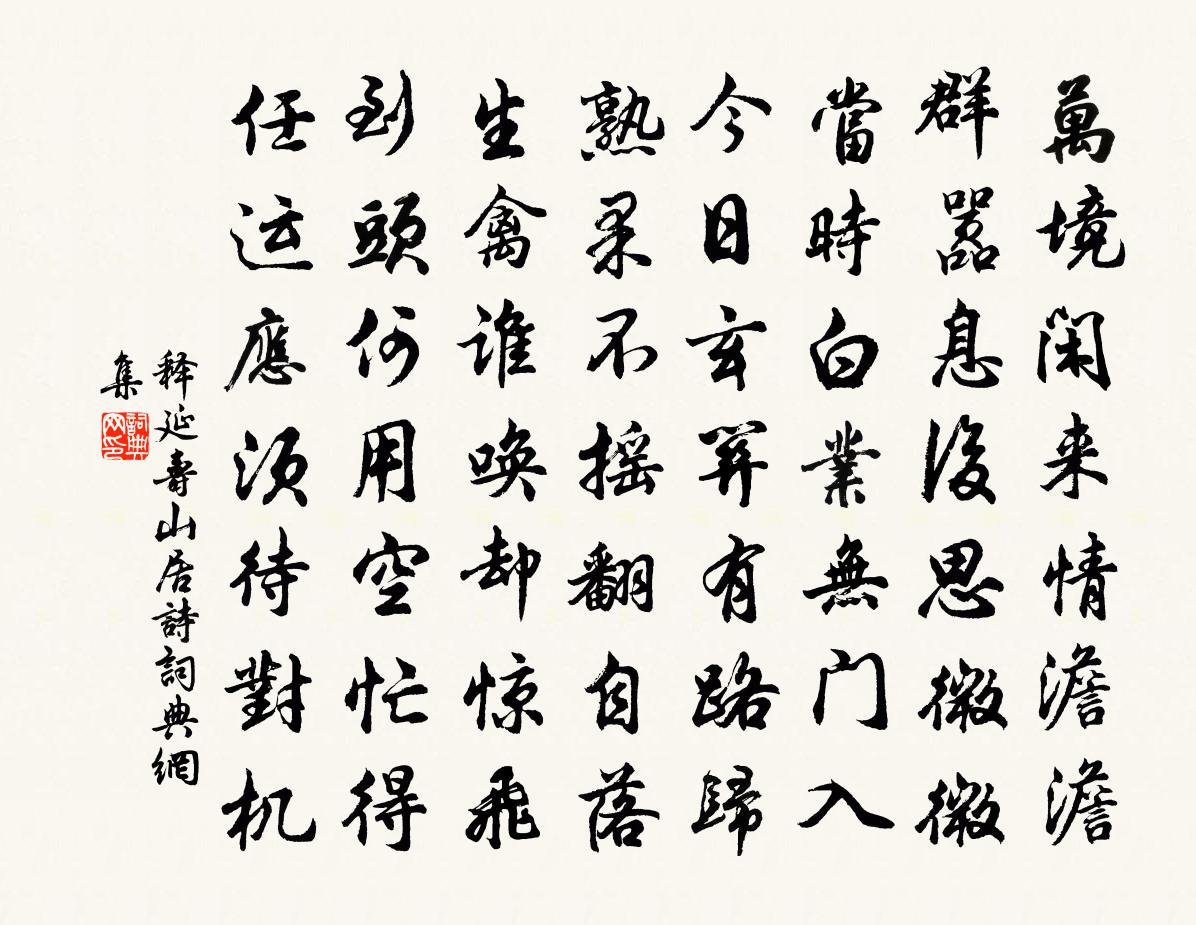 萬境闲来情澹澹
群嚣息後思微微
當時白業無门入
今日玄關有路歸
熟果不摇翻自落
生禽誰唤却惊飛
到頭何用空忙得
任运應须待對机
释延壽山居詩詞典網
集
詞典
网印